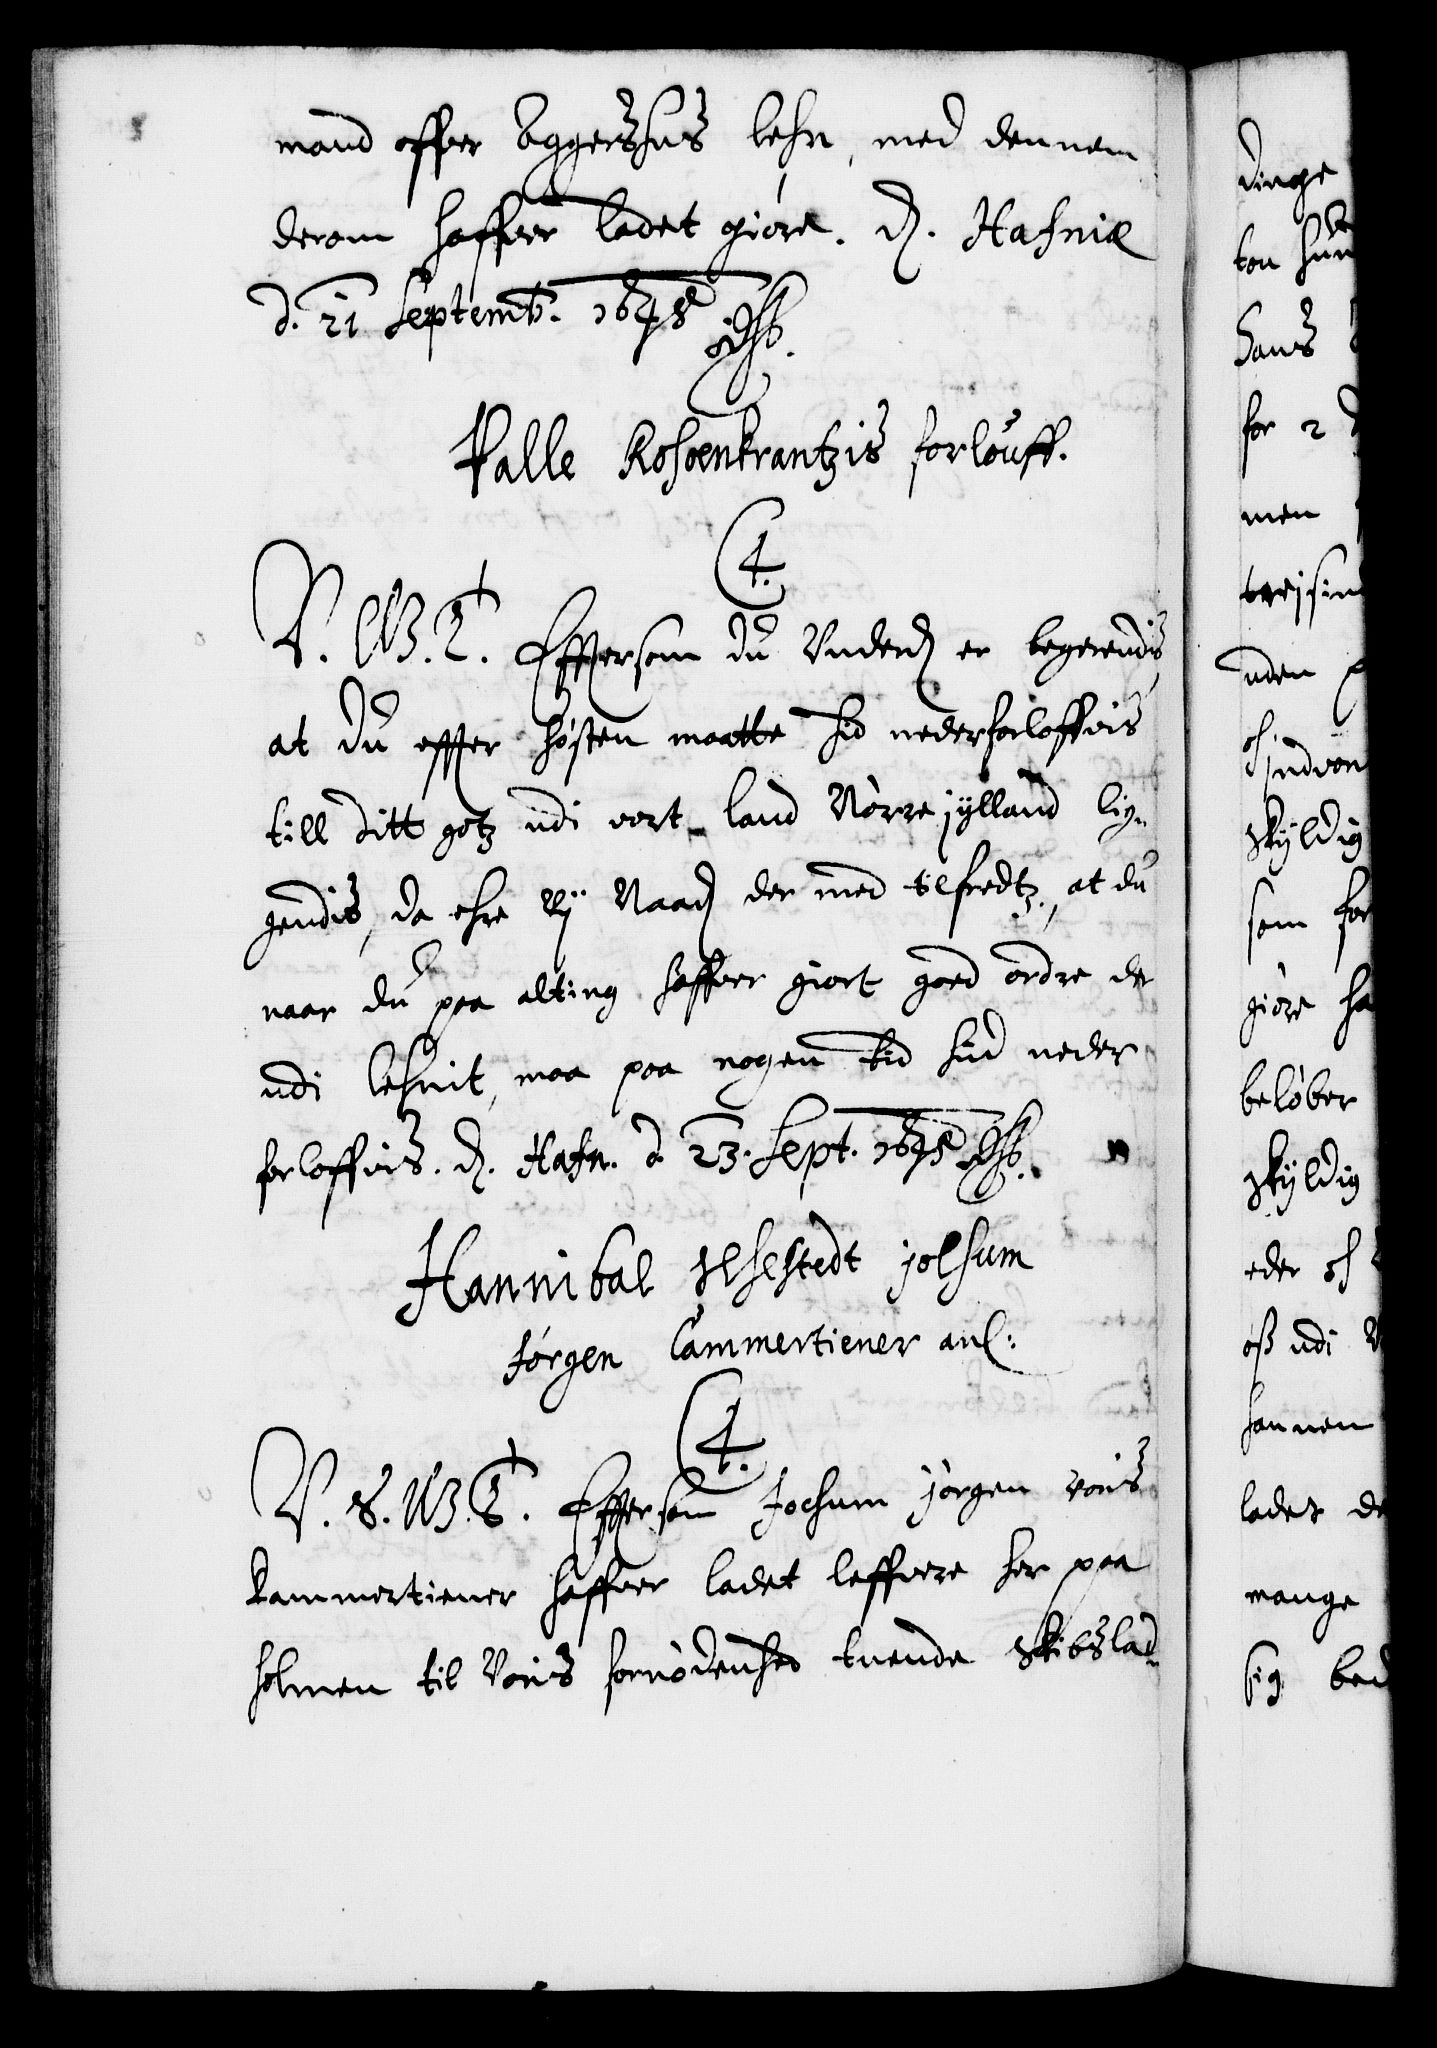 mand offuer Aggershus lehn, med dennem
derom haffuer ladet giøre. Hafniæ
d. 21 Septemb. 1648
Palle Rosenkrantzis forlouff.
C4.
V. G. T. Efftersom du Underd. er begerendis
at du effter høsten maatte hid nederforloffuis
till ditt gotz udi vort land Nørre jylland lig-
gendis, da ehre Vj Naad. der med tilfredtz, at du
naar du paa alting haffuer giort goed ordre der
udi lehnit, maa paa nogen tid hid neder
forloffuis. Hafn. d. 23. Sept. 1648
Hannibal Sehstedt
Jørgen Cammertiener anl:
C4.
V. S. G. T. Efftersom Jochum Jørgen voris
kammertiener haffuer ladet leffuere her paa
holmen til Voris fornødenhed tuende skibslad-
dinge
ton
Hans
for 2
men
uden
skyldig
som for
giøre ha
beløber
skyldig
eder oc
oss udi
hannem
lader de
mange
sig bed